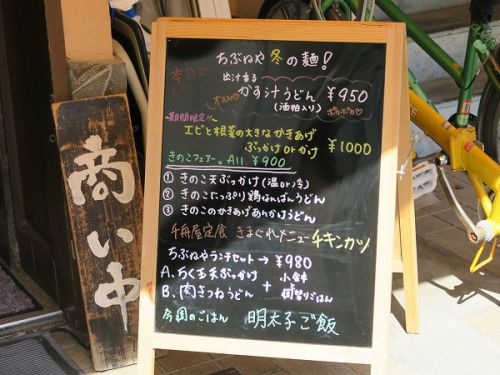 商い中
ちぶねや 冬の麺!
本日
出汁香る
かす汁うどん ¥950
オススメ
(酒粕入り)
ポカポカ♡
~期間限定!!~
エビと根菜の大きなかきあげ
ぶっかけorかけ ¥1000
きのこフェアー。All ¥900
① きのこ天ぶっかけ(温or冷)
② きのこたっぷり鶏なんばんうどん
③ きのこのかきあげあんかけうどん
千舟屋定食 きまぐれメニュー チキンカツ
ちぶねやランチセット → ¥980
A. ちく玉天ぶっかけ
B. 肉きつねうどん
+
小鉢
+
ごはん
今週のごはん 明太子ご飯